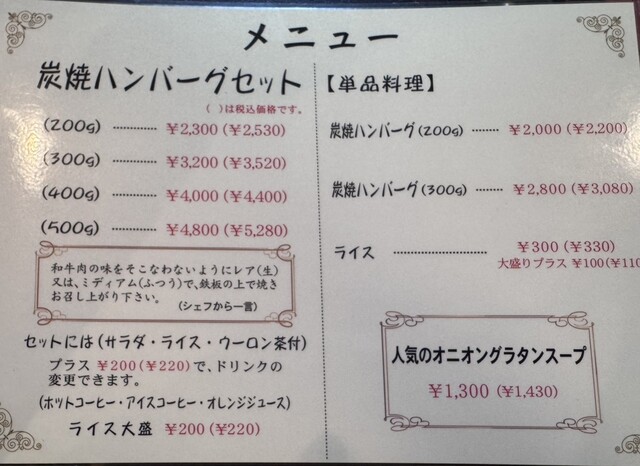 メニュー
炭焼ハンバーグセット
( )は税込価格です。
(200g) ………… ¥2,300 (¥2,530)
(300g) ………… ¥3,200 (¥3,520)
(400g) ………… ¥4,000 (¥4,400)
(500g) ………… ¥4,800 (¥5,280)
和牛肉の味をそこなわないようにレア(生)
又は、ミディアム(ふつう)で、鉄板の上で焼き
お召し上がり下さい。
(シェフから一言)
セットには(サラダ・ライス・ウーロン茶付)
プラス ¥200 (¥220)で、ドリンクの
変更できます。
(ホットコーヒー・アイスコーヒー・オレンジジュース)
ライス大盛 ¥200 (¥220)
【単品料理】
炭焼ハンバーグ(200g) ……… ¥2,000 (¥2,200)
炭焼ハンバーグ(300g) ……… ¥2,800 (¥3,080)
ライス ………………… ¥300 (¥330)
大盛りプラス ¥100 (¥110
人気のオニオングラタンスープ
¥1,300 (¥1,430)